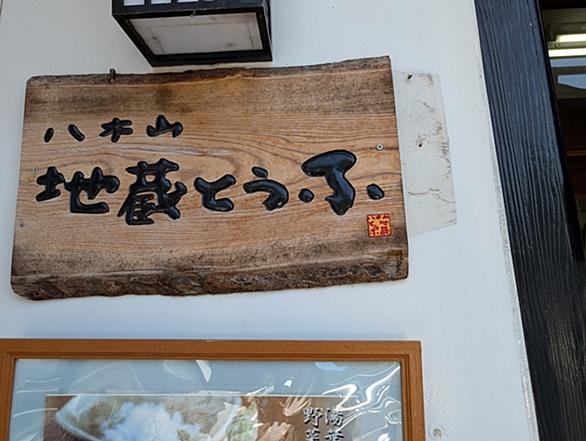 八木山
地蔵とうふ
湯葉
野菜